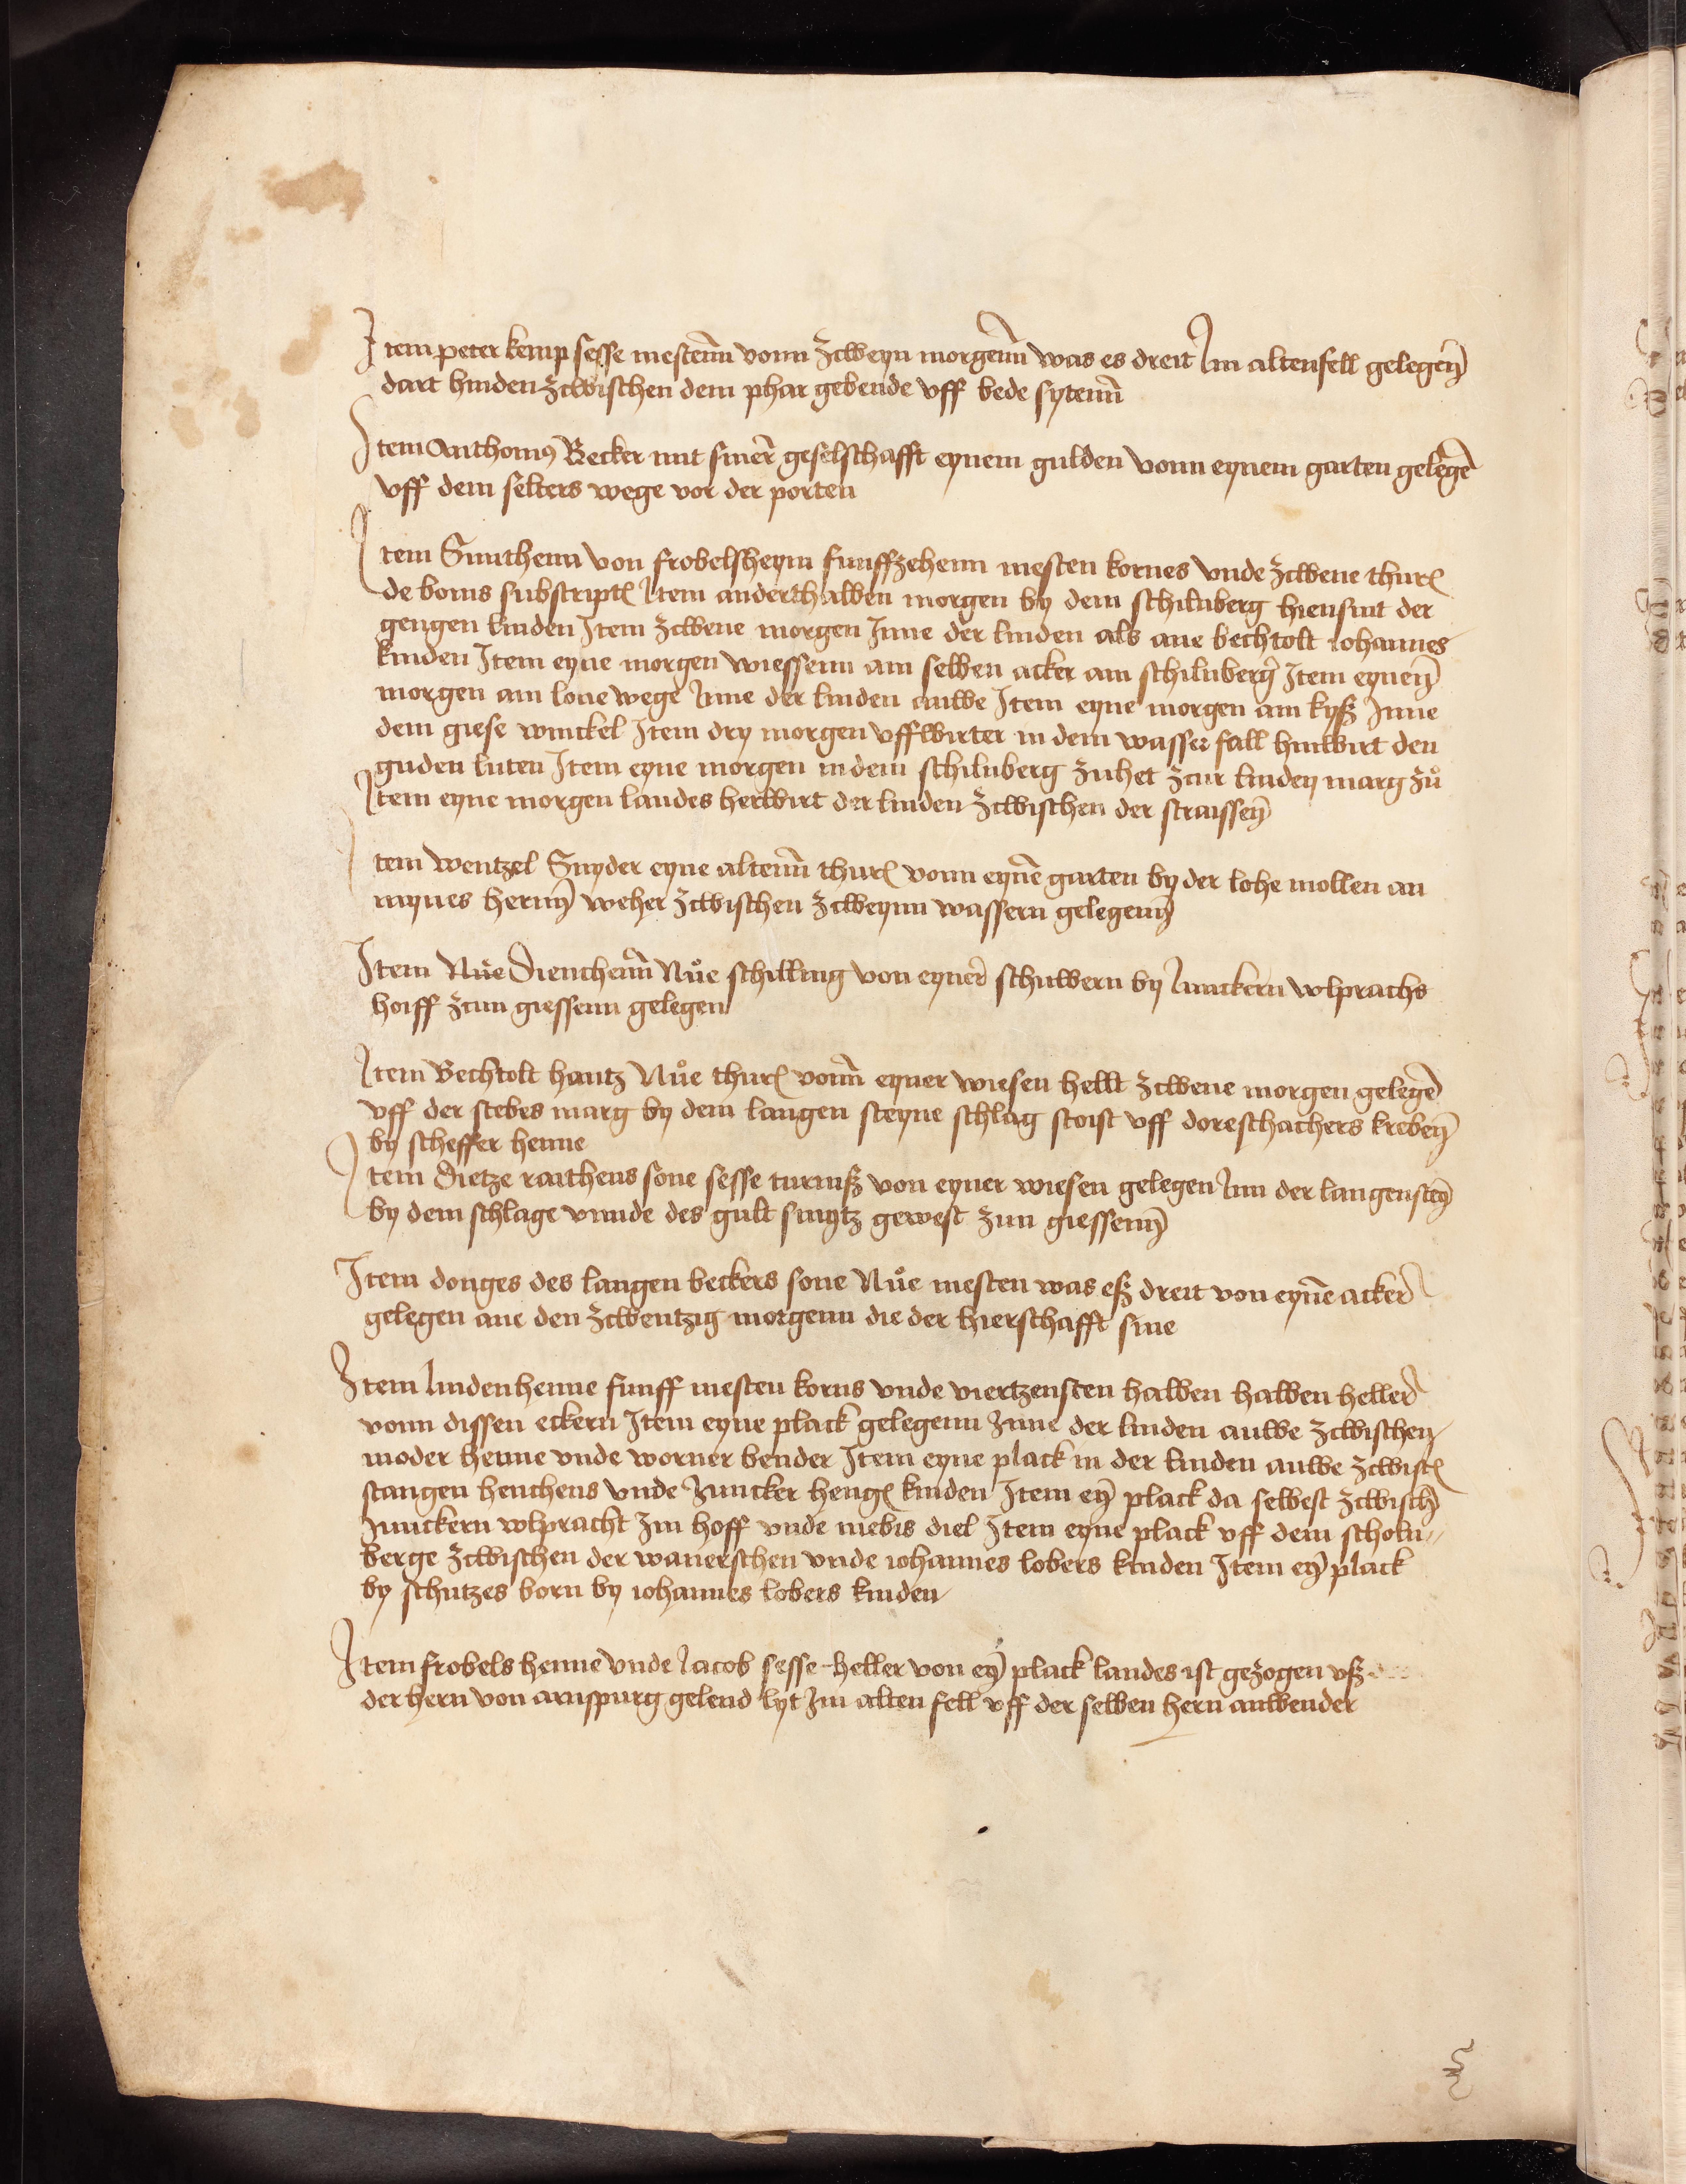 Item peter kemp sesse mestenn vonn zcweyn morgenn was es dreit Im altenfell gelegen
dart hinden zcwischen dem phar gebende vff bede sytenn
Item Anthonius Becker mit siner geselschafft eynem gulden vonn eynem garten gelegē
vff dem selters wege vor der porten
Item Smithenn von frobelsheym funffzehenn mesten kornes vnde zcwene thurꝭ
de bonis subscriptꝭ Item anderthalben morgen by dem schilnberg hiensint der
gengen linden Item zcwene morgen Inne der linden als ane bechtolt iohannes
kinden Item eyne morgen wiessenn am selben acker am schilnberg Item eynen
morgen am lone wege Inne der linden auwe Item eyne morgen am kyß Inne
dem giese winckel Item dry morgen vffwirter in dem wasser fall hinwirt den
guden luten Item eyne morgen in dem schilnberg zuhet zcur linden marg zů
Item eyne morgen landes herwirt der linden zcwischen der straissen
Item wentzel Snyder eyne altenn thurꝭ vonn eynē garten by der lohe mollen an
mynes hernn weher zcwischen zcweynn wassern gelegenn
Item Nůe Dienchenn Nůe schilling von eyner schuwern by Junckern wlprachs
hoiff zcun giessenn gelegen
Item Bechtolt hantz Nůe thurꝭ vonn eyner wiesen hellt zcwene morgen gelegē
vff der stebes marg by dem langen steyne schlag stoist vff doreschachers kreben
by scheffer henne
Item Dietze raithens sone sesse turniß von eyner wiesen gelegen Inn der langensten
by dem schlage vnnde des gult smytz gewest zun giessenn
Item donges des langen beckers sone Nůe mesten was eß dreit von eynē acker
gelegen ane den zcwentzig morgenn die der hierschafft sine
Item lindenhenne funff mesten korns vnde viertzensten halben halben heller
vonn dissen eckern Item eyne plack gelegenn Inne der linden auwe zcwischen
moder henne vnde worner bender Item eyne plack in der linden auwe zcwiscꝭ
stangen henchens vnde Juncker hengꝭ kinden Item eyn plack da selbest zcwisch
Junckern wlpracht Im hoff vnde mebis diel Item eyne plack vff dem scholn⸗
berge zcwischen der wanerschen vnde iohannes lobers kinden Item eyn plack
by schutzes born by iohannes lobers kinden
Item frobels henne vnde Jacob sesse heller von eyn plack landes ist gezogen vß
der hern von arnspurg gelend lyt Im alten fell vff der selben hern anwender